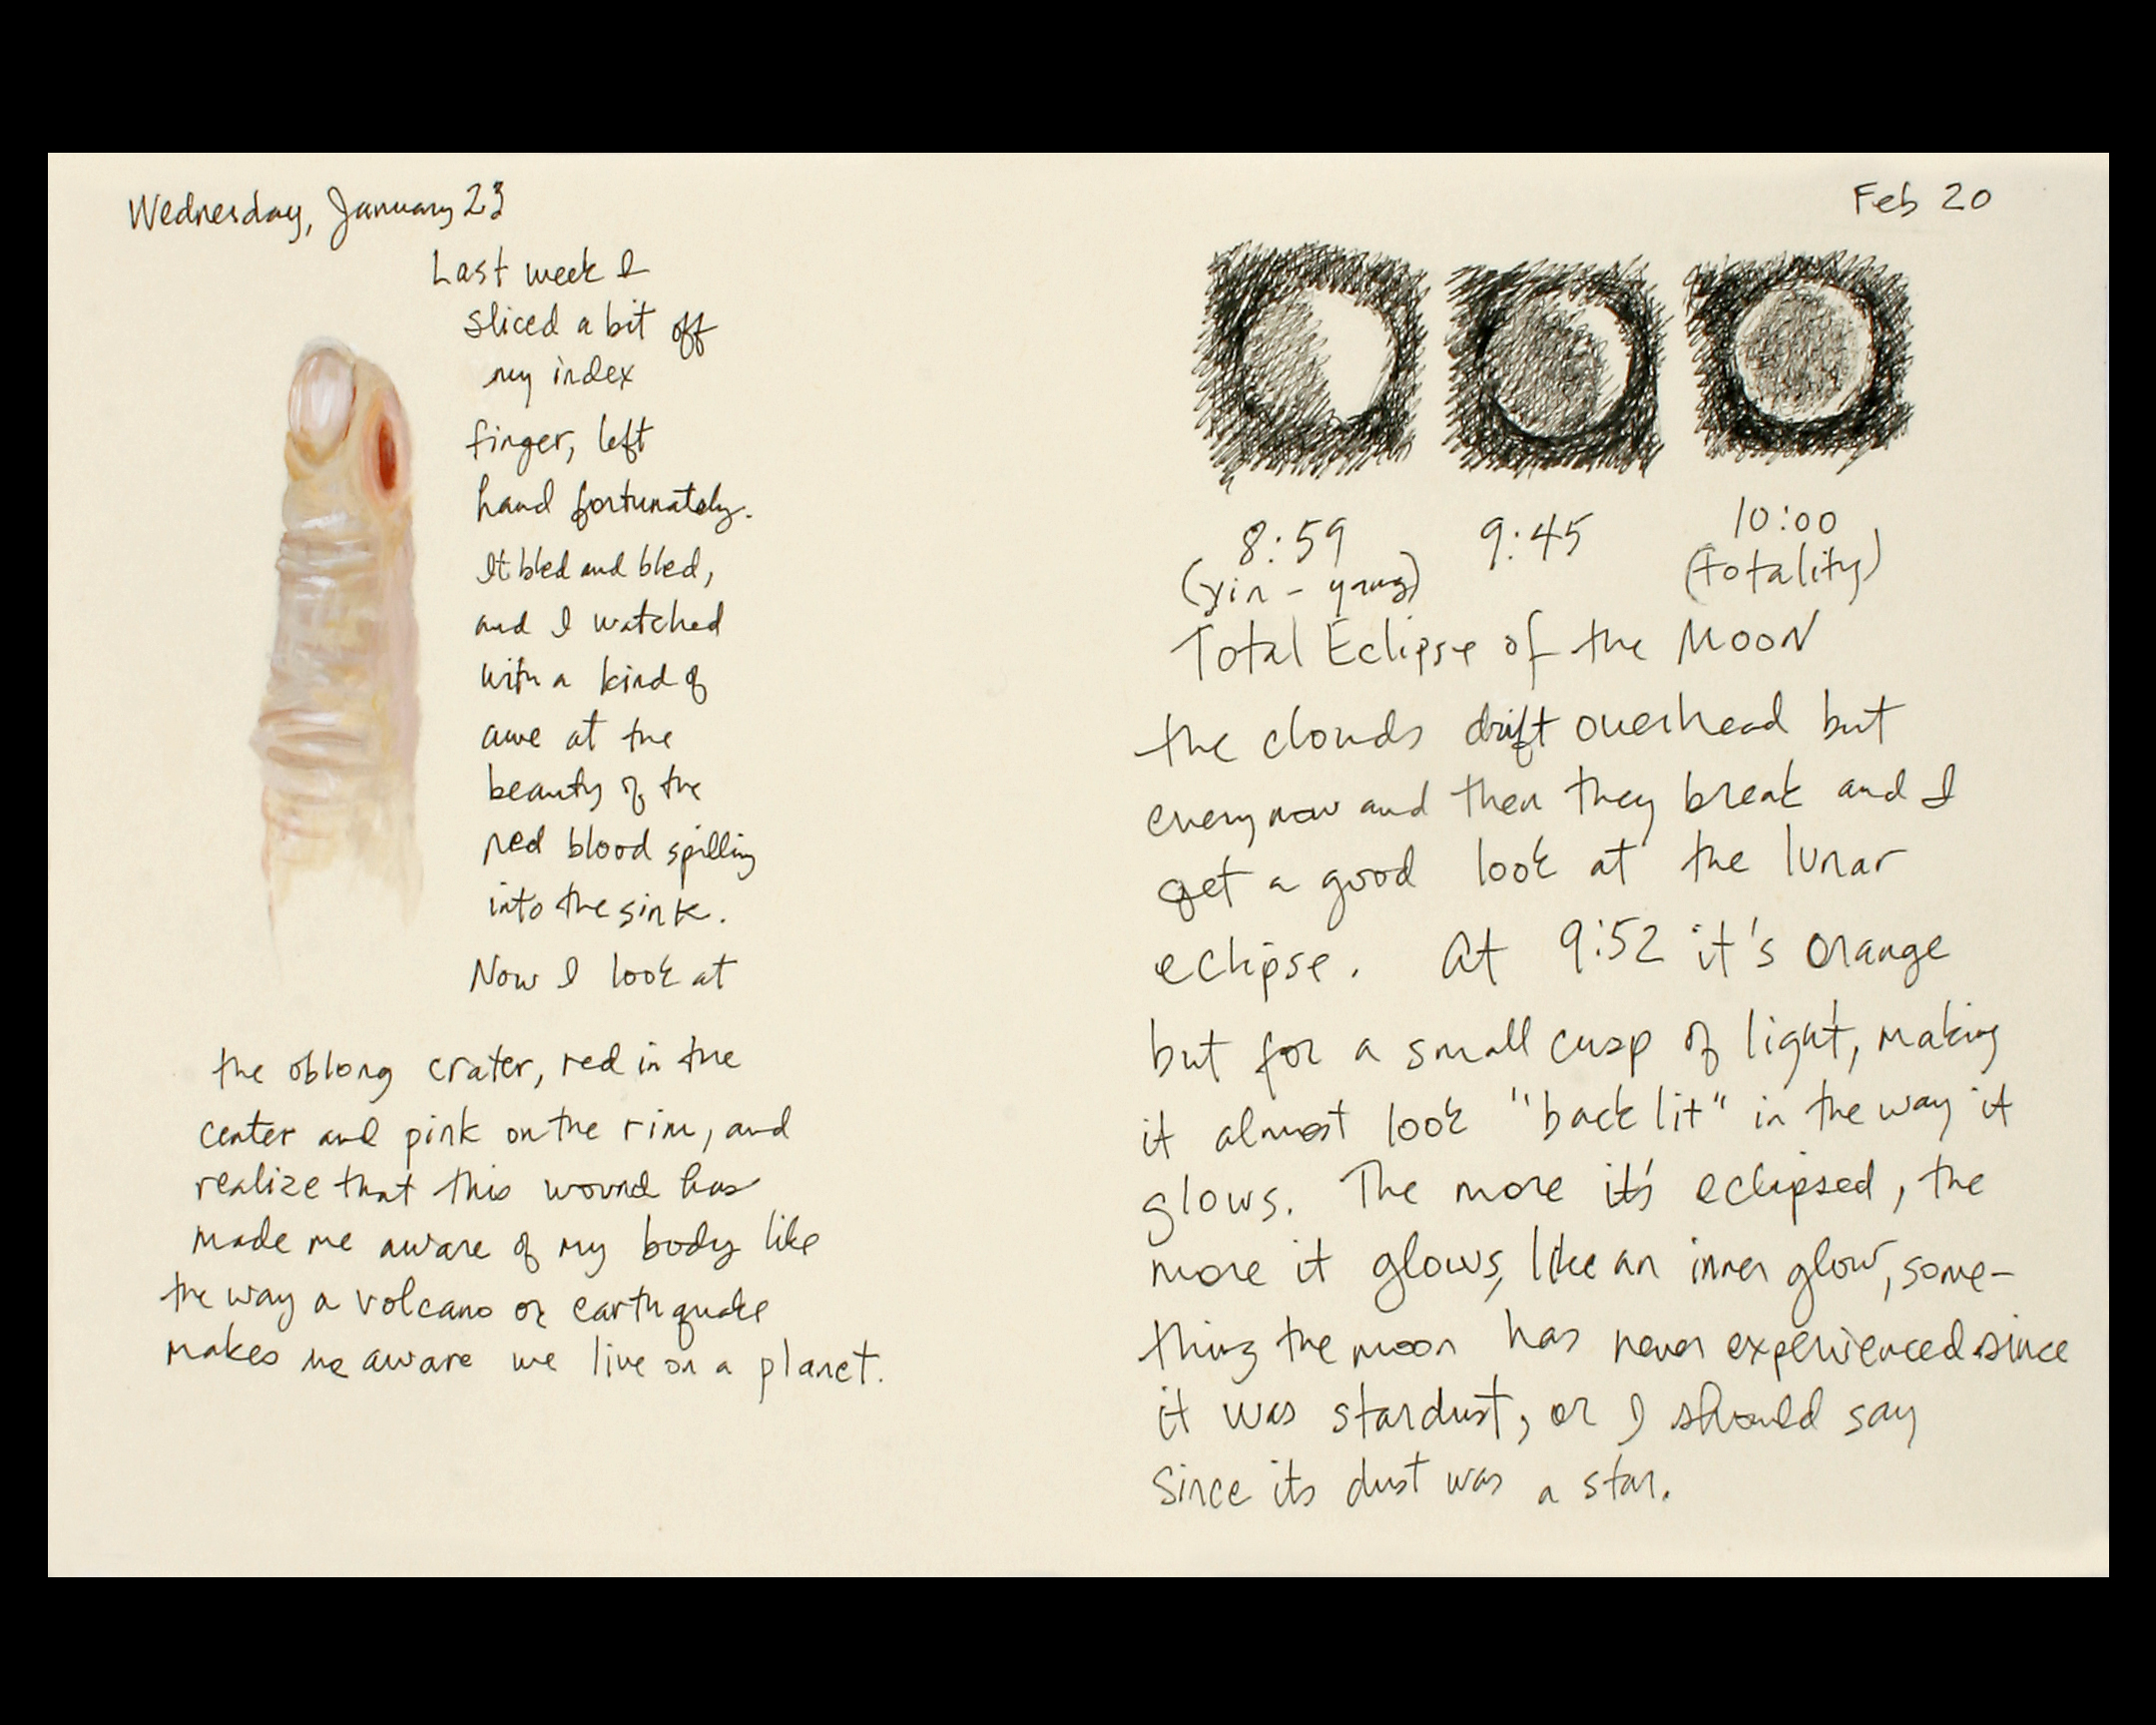 Wednesday, January 23
Last week I
sliced a bit off
my index
finger, left
hand fortunately.
It bled and bled,
and I watched
with a kind of
awe at the
beauty of the
red blood spilling
into the sink.
Now I look at
the oblong crater, red in the
center and pink on the rim, and
realize that this wound has
made me aware of my body like
the way a volcano or earthquake
makes me aware we live on a planet.
Feb 20
8:59 9:45 10:00
(yin - yang) (totality)
Total Eclipse of the Moon
the clouds drift overhead but
every now and then they break and I
get a good look at the lunar
eclipse. At 9:52 it's orange
but for a small cusp of light, making
it almost look "back lit" in the way it
glows. The more it's eclipsed, the
more it glows, like an inner glow, some-
thing the moon has never experienced since
it was stardust, or I should say
since its dust was a star.